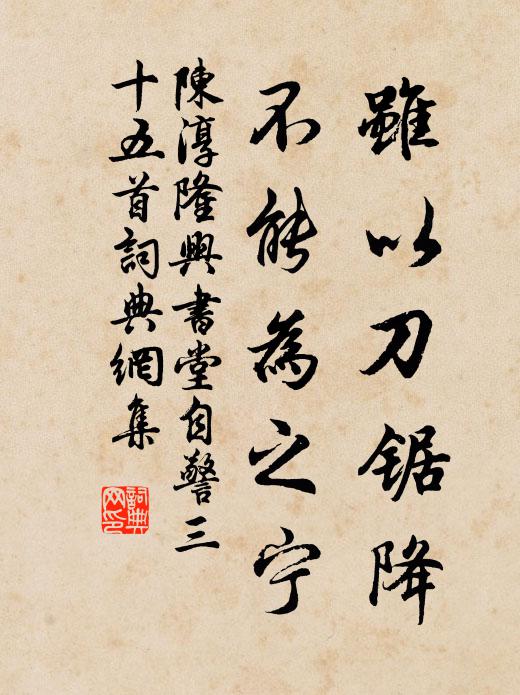 雖以刀锯降
不能為之宁
陳淳隆興書堂自警三
十五首詞典網集
詞典
网印